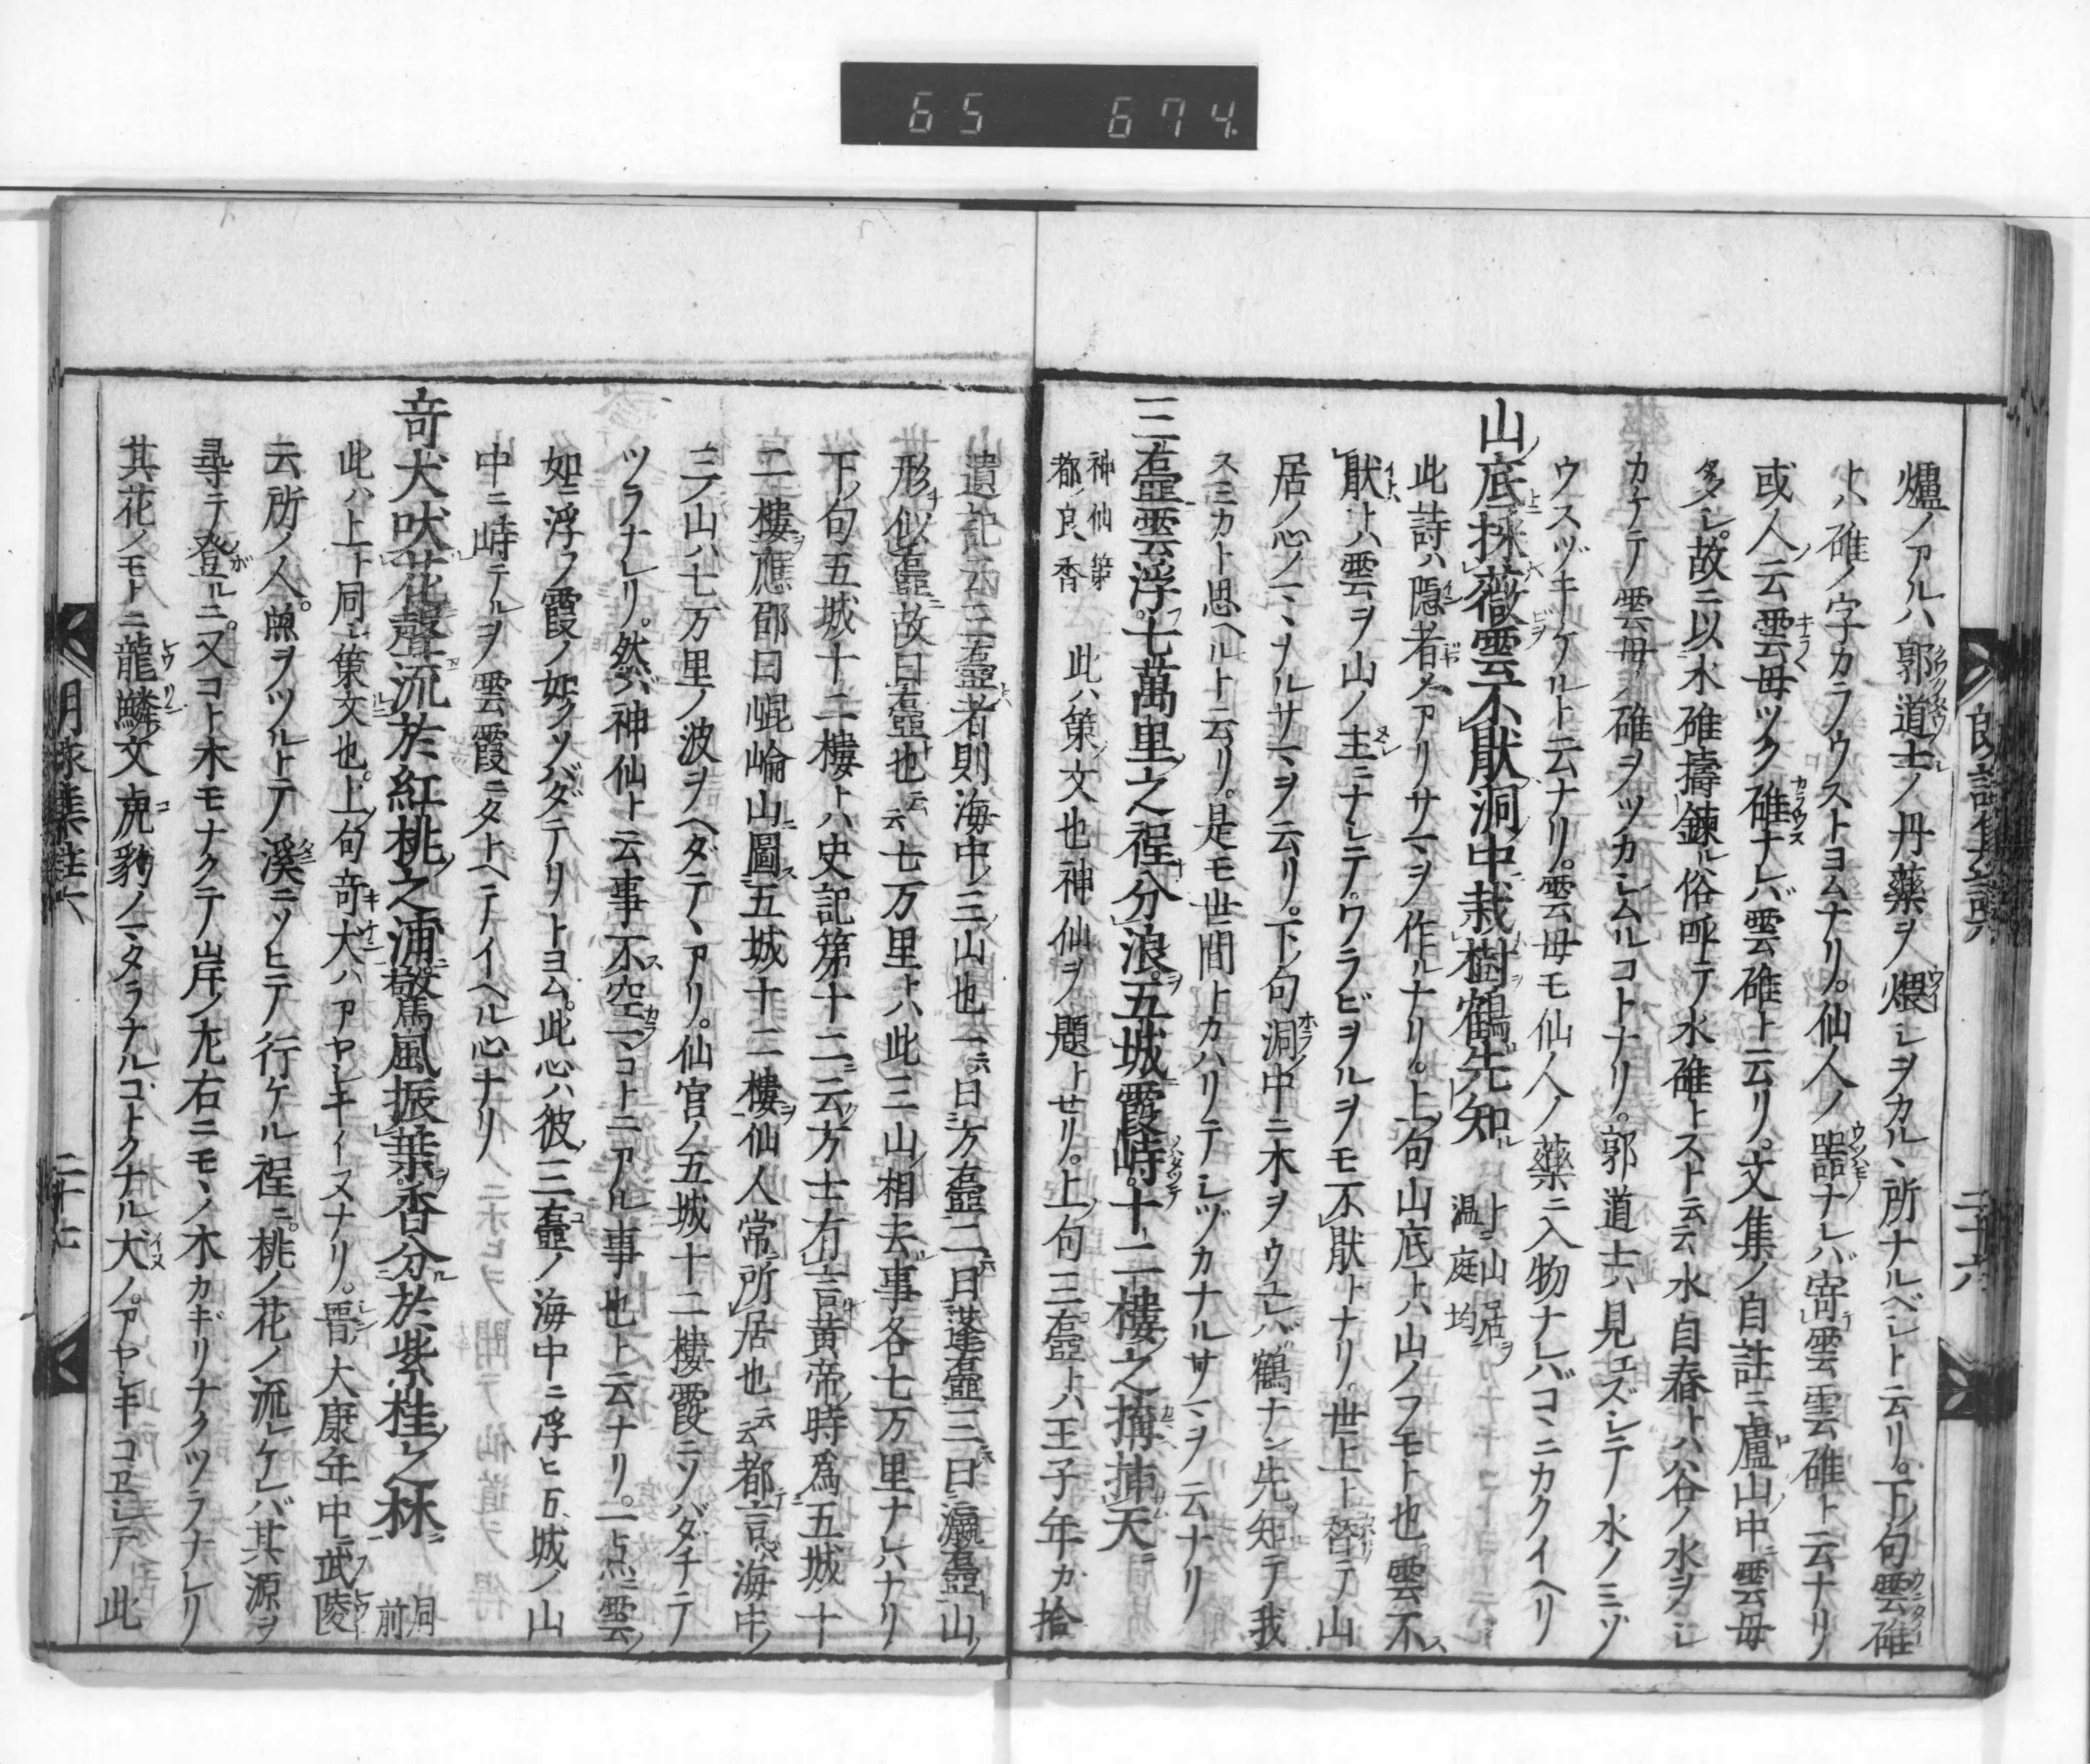 65 674.
爐ノアルハ郭道士ノ丹藥ヲ煨シヲカル、所ナルベシト云リ。下ノ句雲碓
トハ碓ノ字カラノウストヨムナリ。仙人ノ器ナレバ寄雲雲碓ト云ナリ
或人ノ云雲母ツク碓ナレバ雲碓ト云リ。文集ノ自註ニ廬山中雲母
多シ故ニ以水碓擣錬ル俗呼テ水碓トスト云云水自舂トハ谷ノ水ヲシ
カケテ雲母ノ碓ヲツカシムルコトナリ。郭道士ハ見エズシテ水ノミヅ
ウスヅキケルト云ナリ。雲母モ仙人ノ藥ニ入物ナレバコヽニカクイヘリ
山底採薇雲不厭洞中栽樹鶴先知 上ニ山居 温庭均
此詩ハ隱者ニアリサマヲ作ルナリ。上句山底トハ山ノフモト也。雲不
厭トハ雲ヲ山ノ主ニナシテ。ワラビヲルヲモ不厭トナリ。世上ト替テ山
居ノ心ノマヽナルサマヲ云リ。下ノ句洞中ニ木ヲウユレバ鶴ナン先知テ我
スミカト思ヘルト云リ。是モ世間トカハリテシヅカナルサマヲ云ナリ
三壺雲浮。七萬里之程分浪。五城霞峙。十二樓之搆插天
神仙策 都良香 此ハ策ノ文也神仙ヲ題トセリ。上ノ句三壺トハ王子年カ拾
遺記云三壺者則海中ノ三山也一曰方壺二曰蓬壺三曰瀛壺山ノ
形似壺故曰壺也云云七万里トハ此三山相去事各七万里ナレハナリ
下ノ句五城十二樓トハ史記第十二云方士有言黄帝ノ時爲五城十
二樓應邵曰崐崘山圖五城十二樓仙人常所居也云云都言海中ノ
三ノ山ハ七万里ノ波ヲヘダテヽアリ。仙官ノ五城十二樓霞ニソバダチテ
ツラナレリ。然バ神仙ト云事不空マコトニアル事也ト云ナリ。一点ニ雲ノ
如ニ浮フ霞ノ如クソバダテリトヨム。此心ハ彼三壺ノ海中ニ浮ヒ五城ノ山
中ニ峙テルヲ雲霞ニタトヘテイヘル心ナリ
奇犬吠花聲流於紅桃之浦驚風振葉香分於紫桂之林 同前
此ハ上ト同シ策文也。上句奇犬ハアヤシキイヌナリ。晉ノ大康年中ニ武陵ト
云所ノ人。魚ヲツルトテ溪ニソヒテ行ケル程ニ。桃ノ花ノ流レケレバ其源ヲ
尋テ登ルニ。又コト木モナクテ岸ノ左右ニモヽノ木カギリナクツラナレリ
其花ノモトニ龍鱗文虎豹ノマタラナルゴトクナル犬ノ。アヤシキコヱシテ此
朗詠集註六 二十六
朗詠集註六 二十七